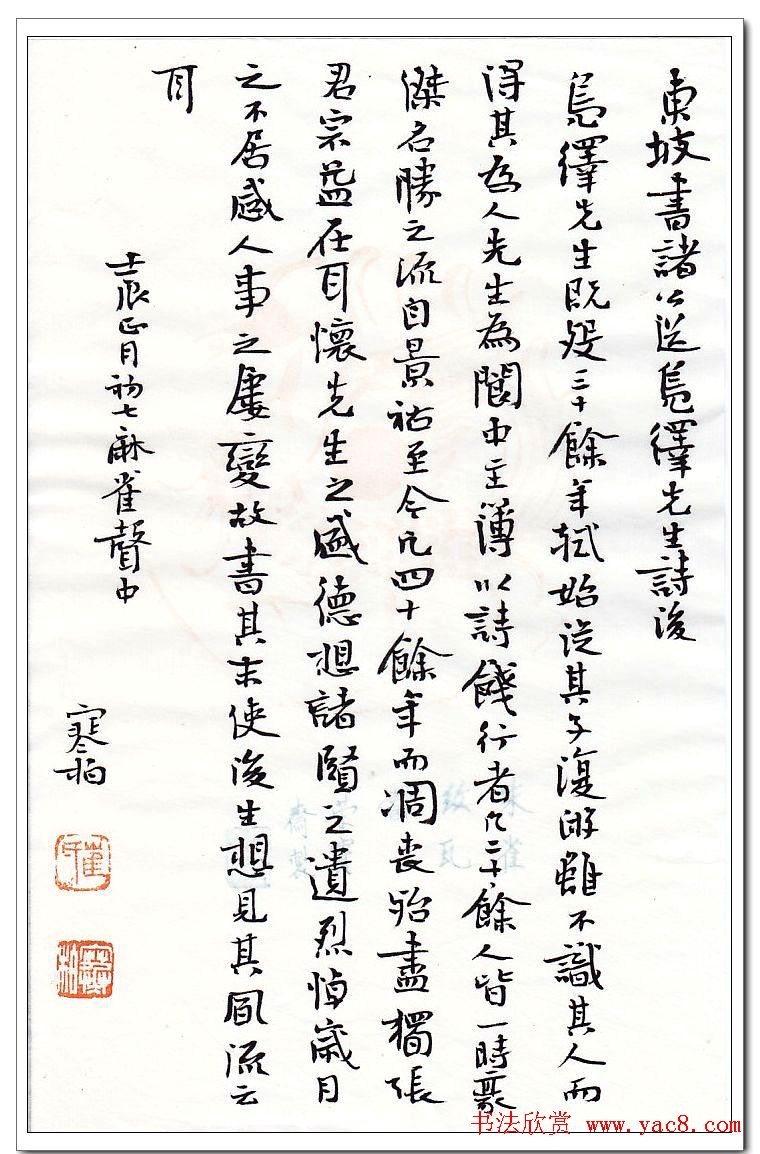 東坡書諸公送鳧繹先生詩後
鳧繹先生既歿三十餘年軾始從其子復游雖不識其人而
得其為人先生為閬中主薄以詩餞行者凡二十餘人皆一時豪
傑名勝之流自景祐至今凡四十餘年而凋喪殆盡獨張
君宗益在耳懷先生之盛德想諸賢之遺烈悼歲月
之不居感人事之屢變故書其末使後生想見其風流云
耳
壬辰正月初七麻雀聲中
寒柏
书法欣赏 www.yac8.com